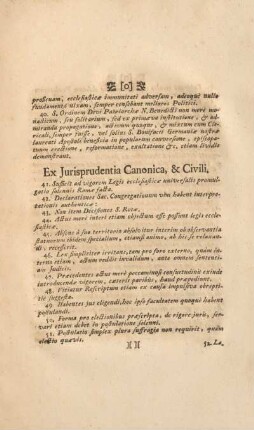 [o]
profanam, ecclesiasticæ immunitati adversam, adeoque nullo
fundamento nixam, semper censebant meliores Politici.
40. S. Ordinem Divi Patriarchæ N. Benedicti non mere monasticum,
seu solitarium, sed ex primæva institutione, & admiranda
propagatione, actionum quoque, & mixtum cum Clericali,
semper fuisse, vel solius S. Bonifacii Germaniæ nostræ
laureati Apostoli beneficia in populorum conversione, episcopatuum
erectione, reformatione, exaltatione &c. etiam lividis
demonstrant.
Ex Jurisprudentia Canonica, & Civili,
41. Sufficit ad vigorem Legis ecclesiasticæ universalis promulgatio
solennis Romæ facta.
42. Declarationes Sac. Congregationum vim habent interpretationis
authenticæ:
43. Non item Decisiones S. Rotæ.
44. Actus mere interni etiam objectum esse possunt legis ecclesiasticæ.
45. Absens à suo territorio absolvitur interim ab observantia
statutorum ibidem specialium, etiamsi animo, ab his se relaxandi
recesserit.
46. Lex simpliciter irritans, tam pro foro externo, quàm interno
etiam, actum reddit invalidum, ante omnem sententiam
Judicis.
47. Præcedentes actus merè peccaminosi consuetudini exinde
introducendæ vigorem, cæteris paribus, haud præpediunt.
48. Vitiatur Rescriptum etiam ex causa impulsiva obreptitie
suggesta.
49. Habentes jus eligendi, hoc ipso facultatem quoque habent
postulandi.
50. Forma pro electionibus præscripta, de rigore juris, servari
etiam debet in postulatione solenni.
51. Postulatio simplex plura suffragia non requirit, quàm
electio quævis.
)( )( 52. La-